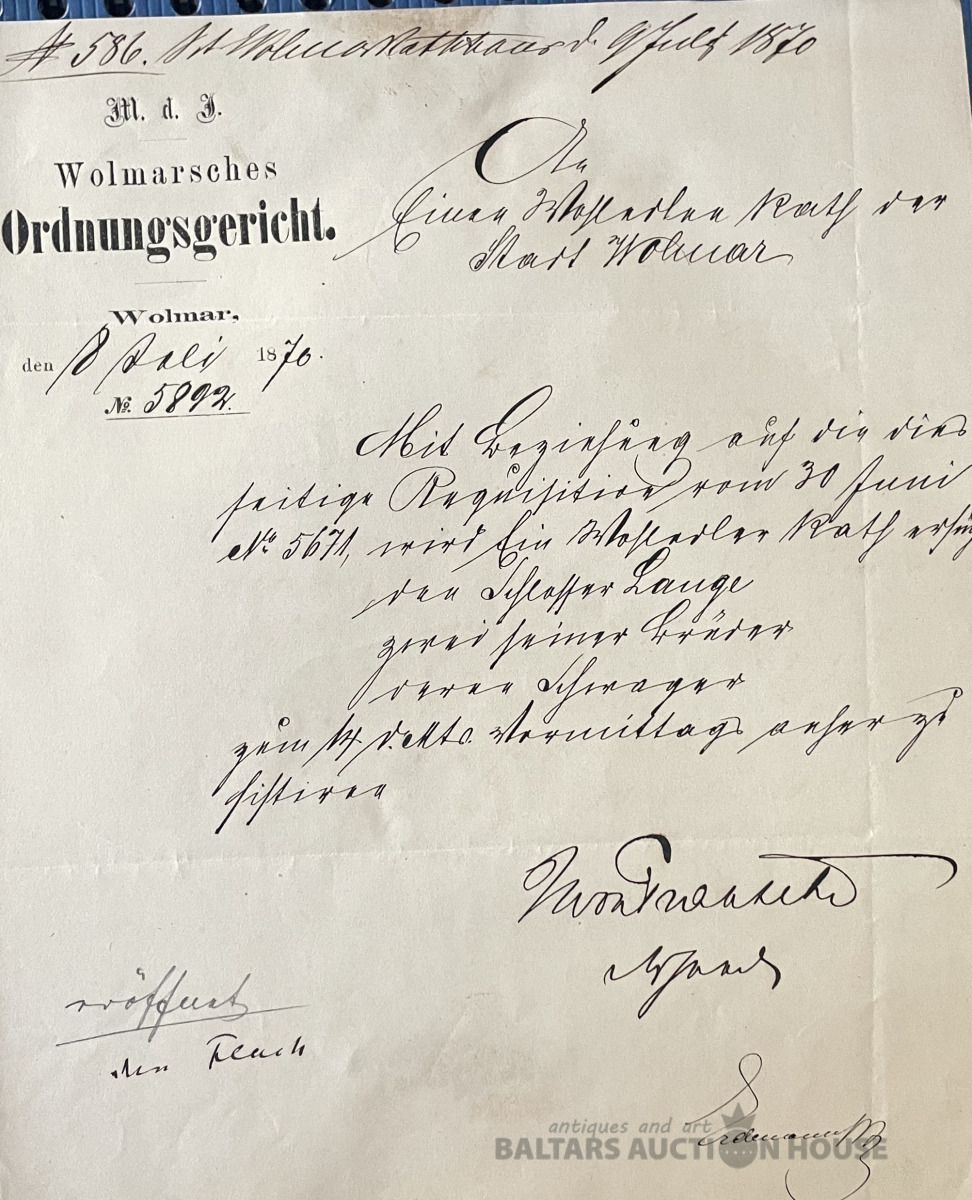 # 586. Wolmar Rathhaus d. 9 July 1870
M. d. J.
Wolmarsches
Ordnungsgericht.
Wolmar,
den 8 Juli 1870.
№ 5892.
An
Einen Wohledlen Rath der
Stadt Wolmar
Mit Beziehung auf die dies
seitige Requisition vom 30 Juni
№ 5671, wird Ein Wohledler Rath ersuch
den Schlosser Lange
zwei seiner Brüder
deren Schwager
zum 14 d. Mts. Vormittags anher zu
sistiren
eröffnet
den
antiques and art
BALTARS AUCTION HOUSE